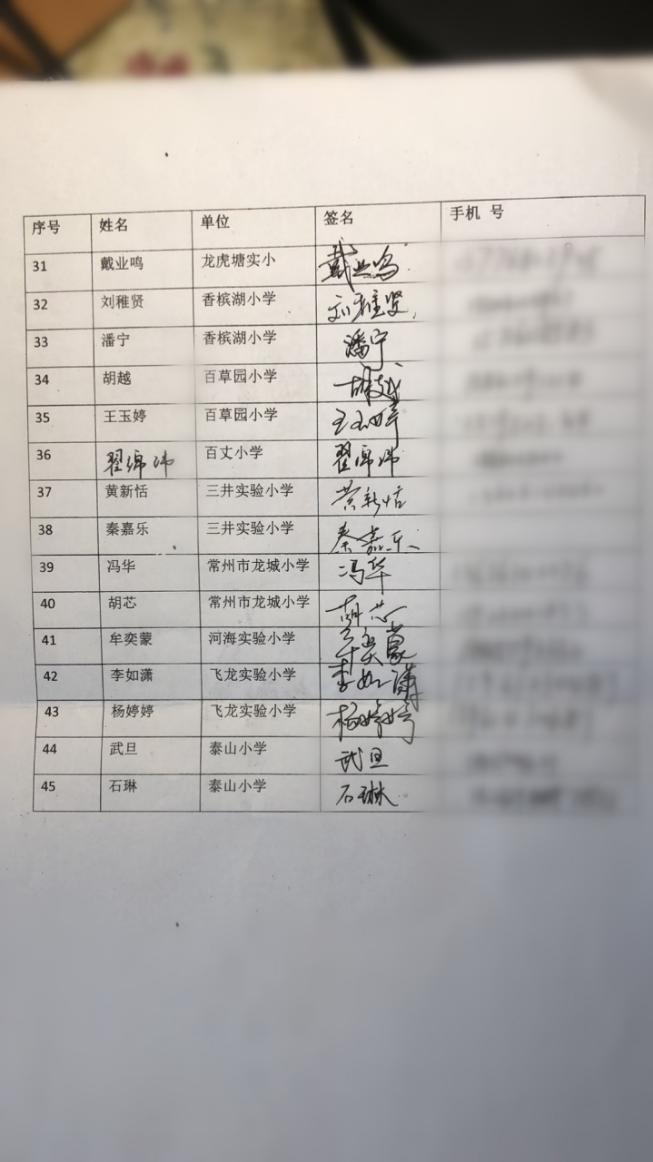 序号 姓名 单位 签名 手机 号
31 戴业鸣 龙虎塘实小 戴业鸣
32 刘稚贤 香槟湖小学 刘稚贤
33 潘宁 香槟湖小学 潘宁
34 胡越 百草园小学 胡越
35 王玉婷 百草园小学 王玉婷
36 翟绵炜 百丈小学 翟绵炜
37 黄新恬 三井实验小学 黄新恬
38 秦嘉乐 三井实验小学 秦嘉乐
39 冯华 常州市龙城小学 冯华
40 胡芯 常州市龙城小学 胡芯
41 牟奕蒙 河海实验小学 牟奕蒙
42 李如潇 飞龙实验小学 李如潇
43 杨婷婷 飞龙实验小学 杨婷婷
44 武旦 泰山小学 武旦
45 石琳 泰山小学 石琳